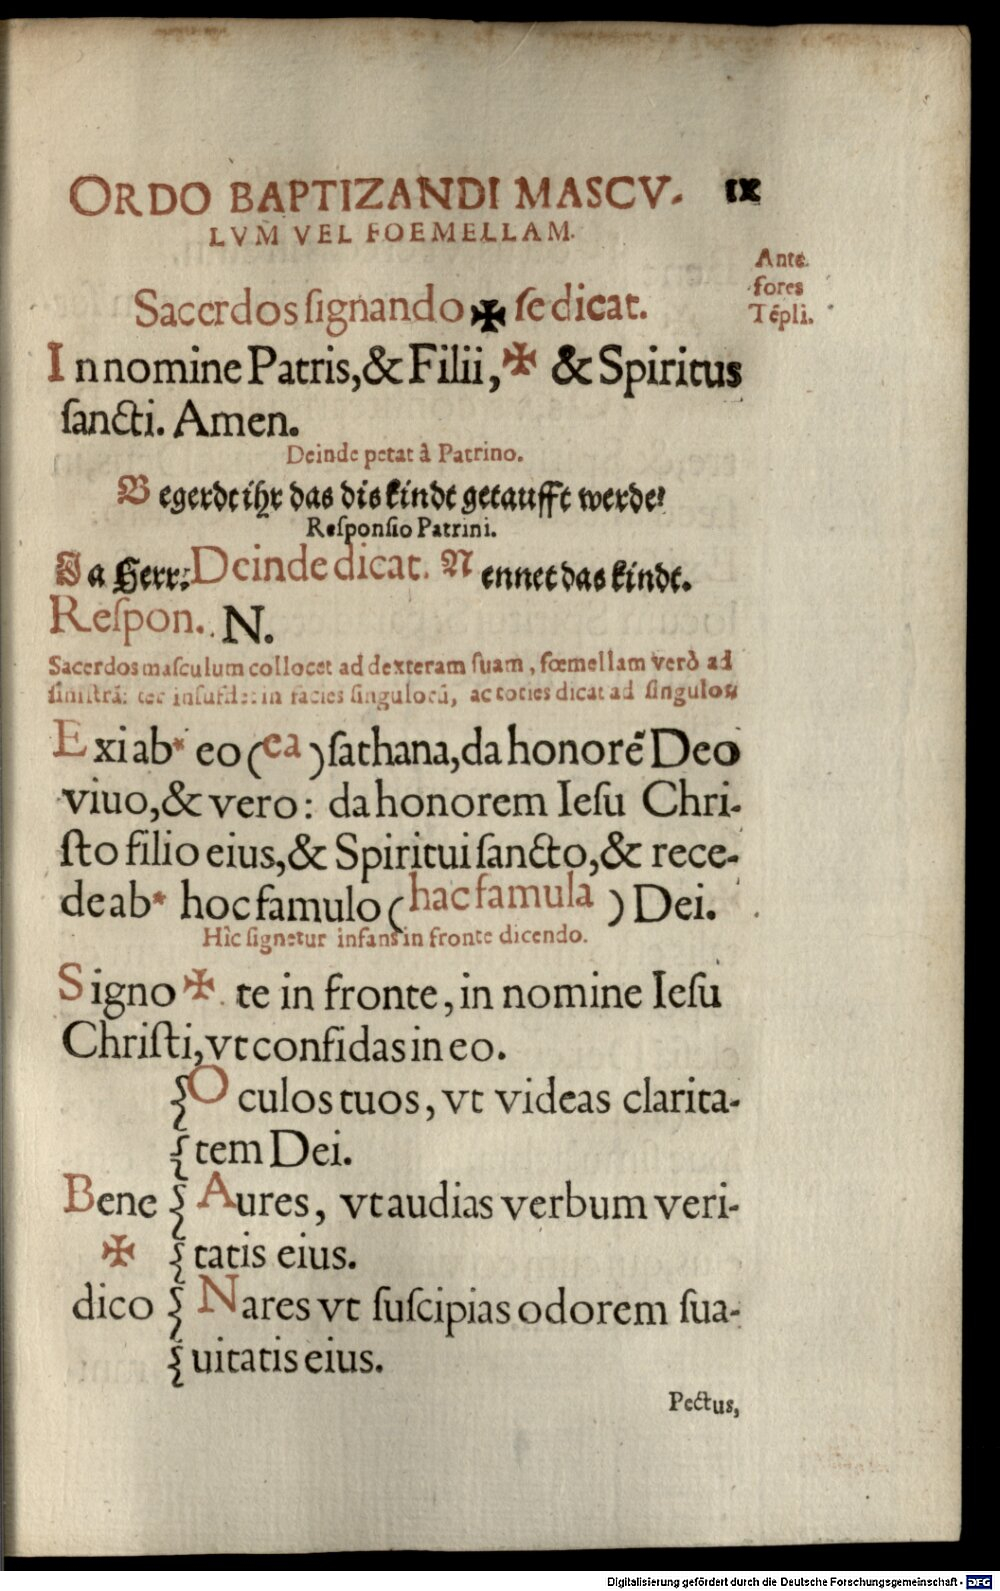 ORDO BAPTIZANDI MASCV. IX
LVM VEL FOEMELLAM.
Ante.
fores
Tēpli.
Sacerdos ſignando ✠ ſe dicat.
In nomine Patris, & Filii, ✠ & Spiritus
ſancti. Amen.
Deinde petat â Patrino.
Begerdt ihr das dis kindt getaufft werde?
Reſponſio Patrini.
Ja Herr: Deinde dicat. Nennet das kindt.
Reſpon. N.
Sacerdos maſculum collocet ad dexteram ſuam, fœmellam verò ad
ſiniſtrā: ter in facies ſingulorū, ac toties dicat ad ſingulos
Exi ab* eo (ea) ſathana, da honorē Deo
viuo, & vero: da honorem Ieſu Chri-
ſto filio eius, & Spiritui ſancto, & rece-
de ab* hoc famulo (hac famula) Dei.
Hîc ſignetur infans in fronte dicendo.
Signo ✠ te in fronte, in nomine Ieſu
Chriſti, vt confidas in eo.
Oculos tuos, vt videas clarita-
tem Dei.
Bene Aures, vt audias verbum veri-
✠ tatis eius.
dico Nares vt ſuſcipias odorem ſua-
uitatis eius.
Pectus,
Digitalisierung gefördert durch die Deutsche Forschungsgemeinschaft - DFG